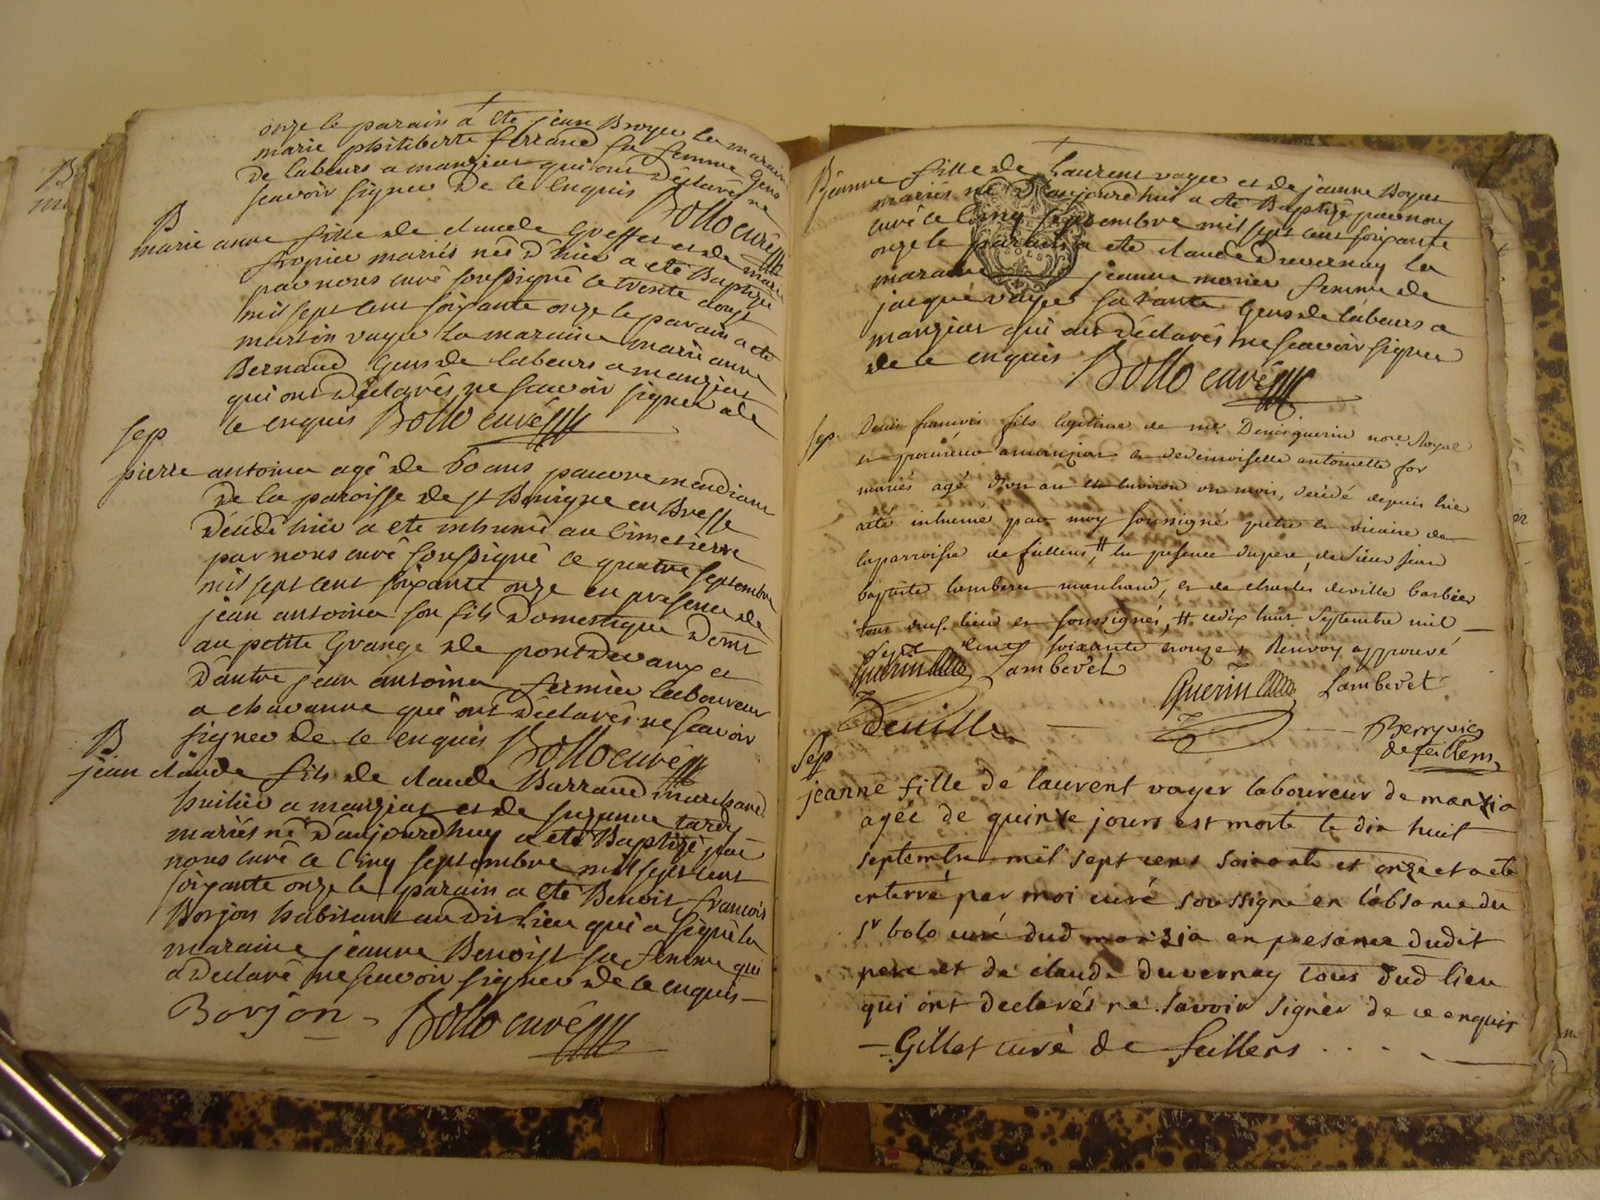 onze le parain a ete jean Broyer la maraine
marie philiberte ferrand sa femme Gens
de labeurs a manziat qui ont déclarés ne
scavoir signer de ce enquis Bollo curé
B
marie anne fille de claude Greffet et de marie
mariés née d'hier a ete Baptisée
par nous curé soussigné le trente aout
mil sept cent soixante onze le parain a ete
martin vayer la maraine marie anne
Bernand Gens de labeurs a manziat
qui ont déclarés ne scavoir signer de
ce enquis Bollo curé
sep
pierre antoine agé de 60 ans pauvre mendiant
de la paroisse de st Benigne en Bresse
décédé hier a ete inhumé au Cimetierre
par nous curé soussigné le quatre septembre
mil sept cent soixante onze en presence de
jean antoine son fils domestique
au petite Grange de pontdevaux et
d'autre jean antoine fermier laboureur
a chavanne qui ont déclarés ne scavoir
signer de ce enquis Bollo curé
B
jean claude fils de claude Barraud marchand
huilier a manziat et de suzanne tardy
mariés né d'aujourdhuy a ete Baptizé par
nous curé ce Cinq septembre mil sept cent
soixante onze le parain a ete Benoit francois
Borjon habitant audit lieu qui a signé la
maraine jeanne Benoist sa femme qui
a declaré ne scavoir signer de ce enquis
Borjon Bollo curé
B
jeanne fille de Laurent vayer et de jeanne Boyat
mariés née d'aujourdhui a ete Baptizé par nous
curé ce Cinq septembre mil sept cent soixante
onze le parain a ete claude Duvernay la
maraine jeanne femme de
jacque vayer sa tante Gens de labeurs a
manziat qui ont déclarés ne scavoir signer
de ce enquis Bollo curé
sep.
Denis francois fils legitime de mre Denis guerin nore Royal
et procureur a manziat et de demoiselle antoinette for
mariés agé d'un an et environ un mois, décédé depuis hier
a été inhumé par moy soussigné pretre et vicaire de
la parroisse de fillens, # en presence du pere, de sieur jean
baptiste lambert marchand, et de charles deville barbier
tous dud. lieu et soussignés, # ce dix huit Septembre mil
sept cent soixante et onze Renvoy approuvé
Guerin Lambert Guerin Lambert
Deville Berry vic
de feillens
Sep
jeanne fille de laurent vayer laboureur de manzia
agée de quinze jours est morte le dix huit
septembre mil sept cent soixante et onze et a ete
enterré par moi curé soussigné en l'absance du
sr bolo curé dud manzia en presance dudit
pere et de claude duvernay tous dud lieu
qui ont declarés ne savoir signer de ce enquis
Gillet curé de feillens